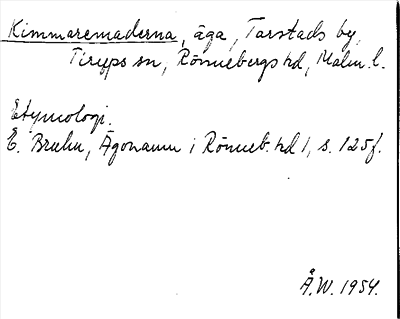 Kimmaremaderna, äga, Tarstads by,
Tirups sn, Rönnebergs hd, Malm. l.
Etymologi.
E. Bruhn, Ägonamn i Rönneb. hd 1, s. 125f.
Å.W. 1954.